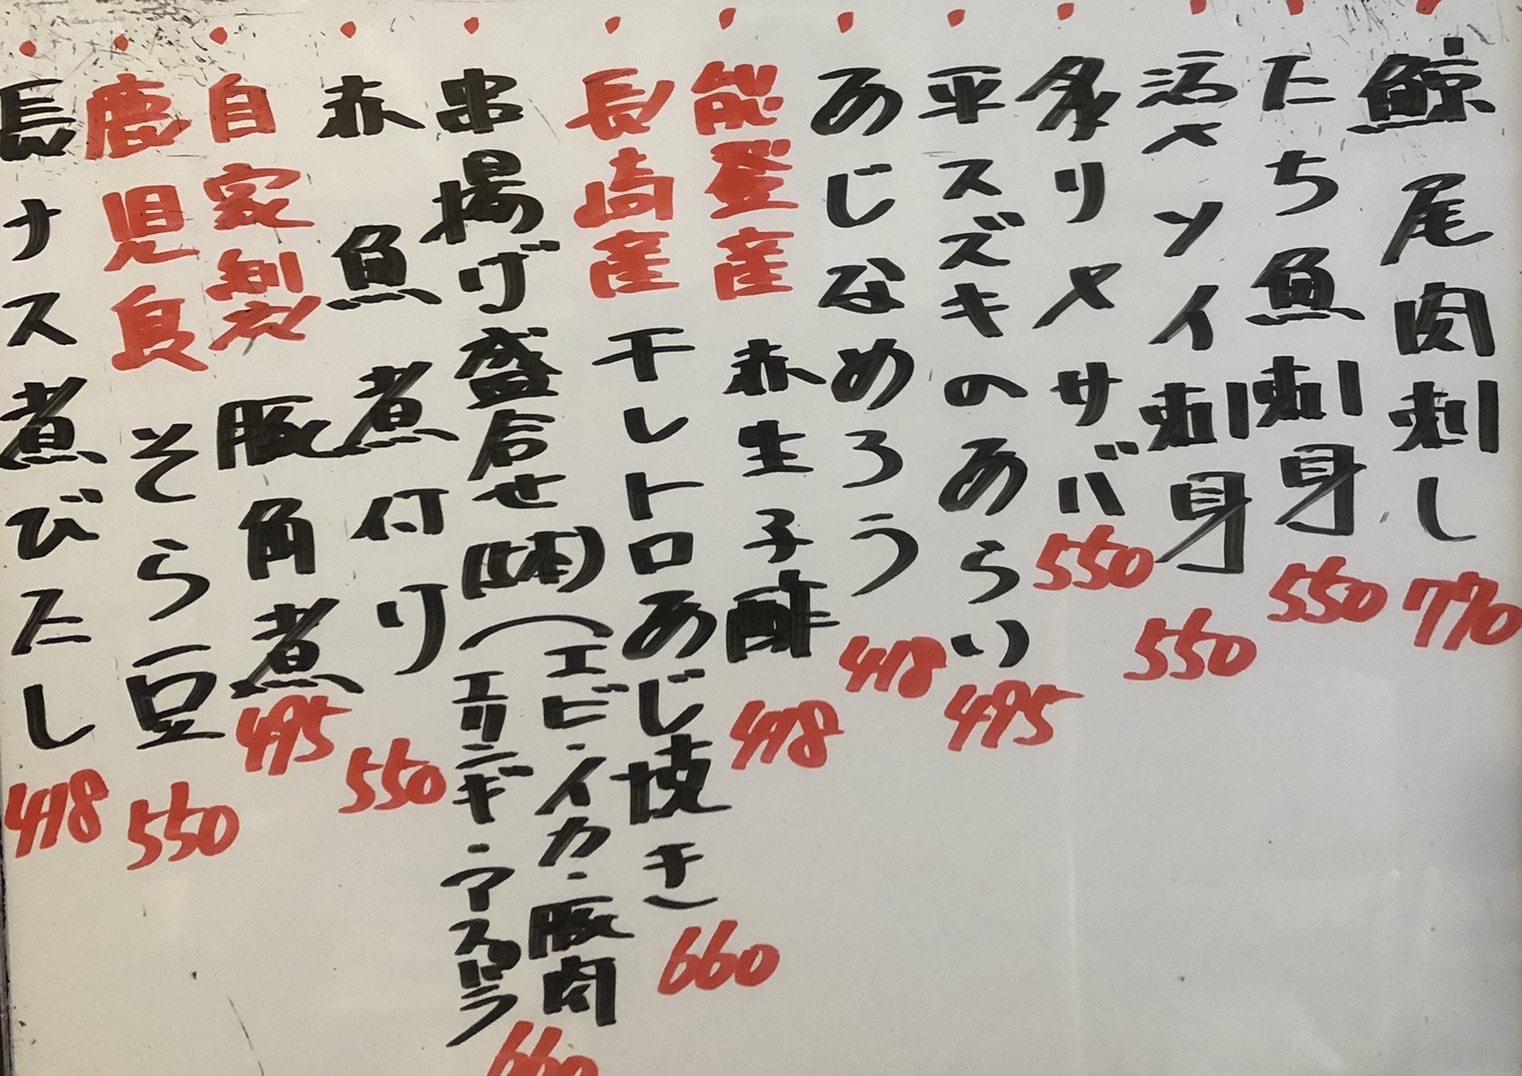 鯨尾肉刺し 770
たち魚刺身 550
活〆ソイ刺身 550
炙り〆サバ 550
平スズキのあらい 495
あじなめろう 418
能登産 赤生子酢 418
長崎産 干しトロあじ焼き 660
串揚げ盛合せ(5本)(エビ・イカ・豚肉
エリンギ・アスパラ 660
赤魚煮付け 550
自家製 豚角煮 495
鹿児島 そら豆 550
長ナス煮びたし 418